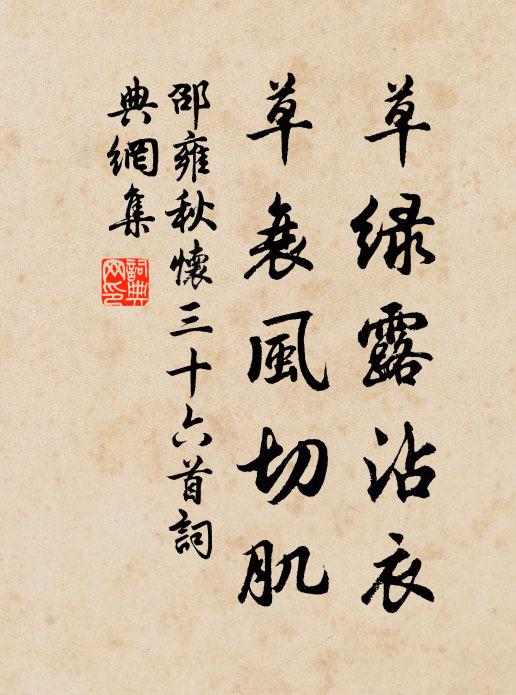 草綠露沾衣
草衰風切肌
邵雍秋懷三十六首詞
典網集
詞典
网印